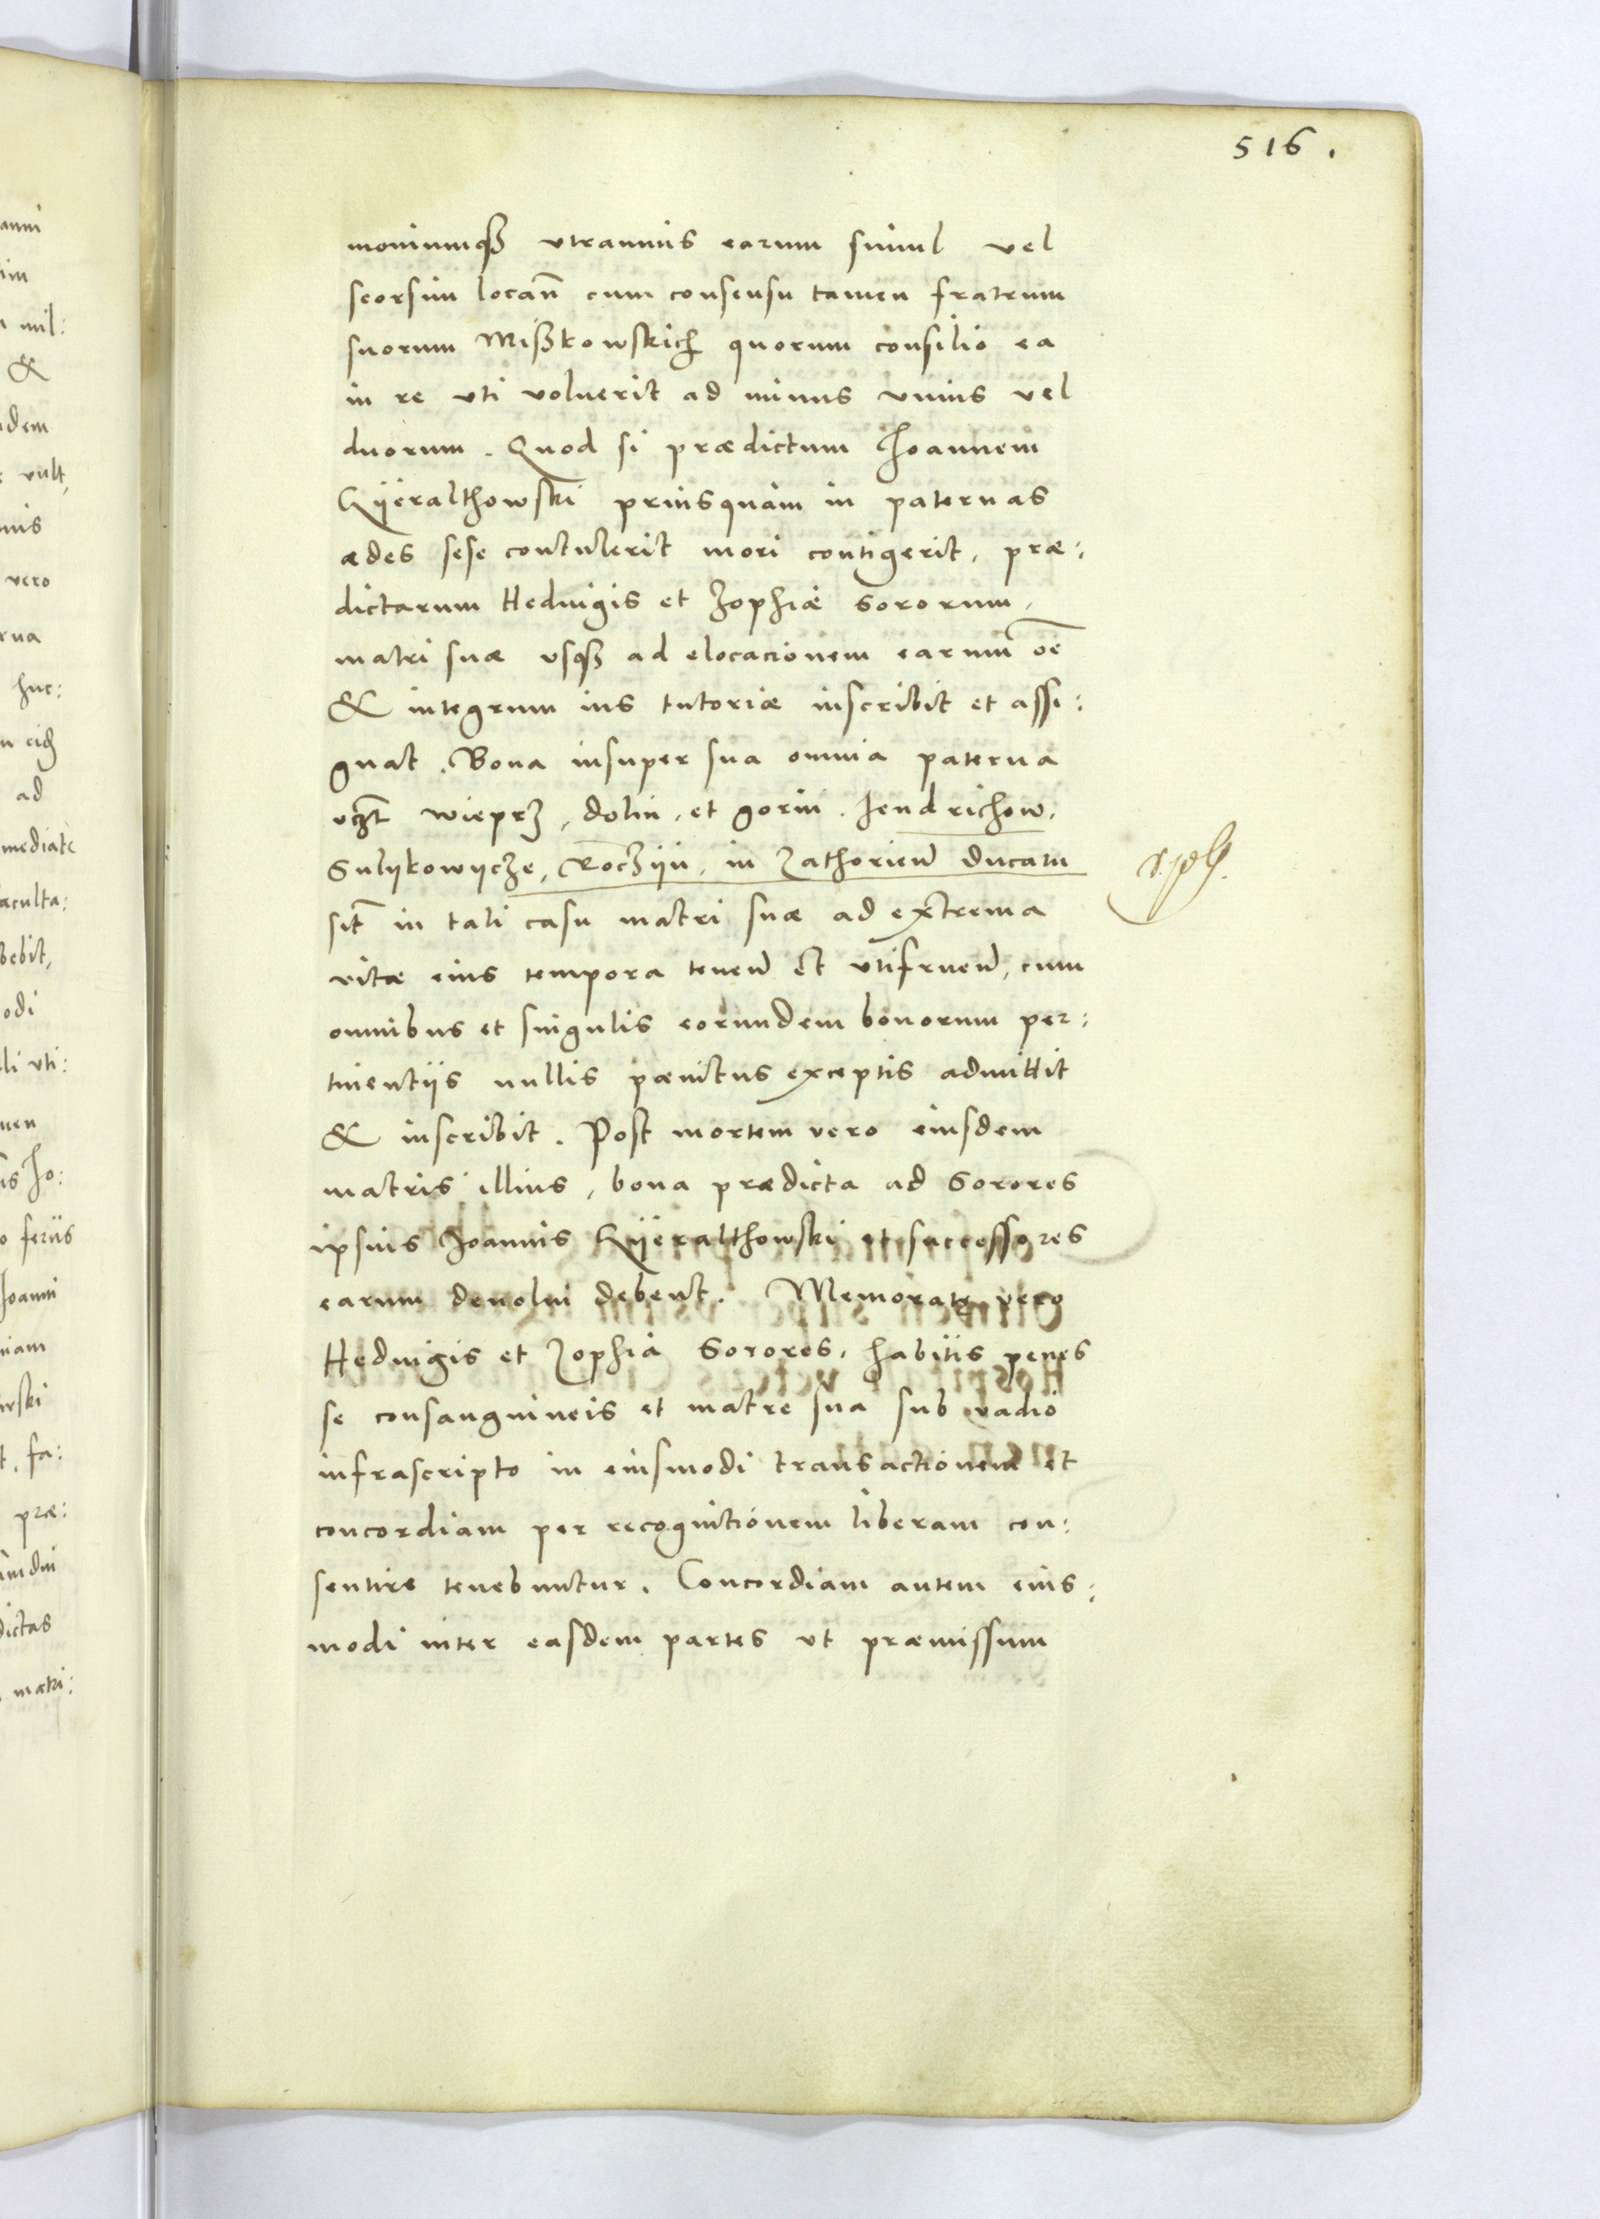 516.
moniumqꝫ vtramuis earum simul vel
seorsim locañ cum consensu tamen fratrum
suorum Mißkowskich quorum consilio ea
in re vti voluerit ad minus vnius vel
duorum. Quod si prædictum Joannem
Gyeralthowski priusquam in paternas
ædes sese contulerit mori contigerit, præ:
dictarum Heduigis et Zophiæ Sororum,
matri suæ vsqꝫ ad elocacionem earum oē
& integrum ius tutoriæ inscribit et assi:
gnat. Bona insuper sua omnia paterna
vcꝫt wieprz, dolni, et gorni. Jendrichow,
Sulykowycze, Roczyni, in Zathorien̄ ducatu
sit in tali casu matri suæ ad extrema
vitæ eius tempora tenen̄ et vtifruen̄, cum
omnibus et singulis eorundem bonorum per:
tinentijs nullis pænitus exceptis admittit
& inscribit. Post mortem vero eiusdem
matris illius, bona prædicta ad Sorores
ipsius Joannis Gyeralthowski et successores
earum deuolui debent. Memoratę vero
Heduigis et Zophia Sorores, habitis penes
se consanguineis et matre sua sub vadio
infrascripto in eiusmodi transactionem et
concordiam per recognitionem liberam con:
sentire tenebuntur. Concordiam autem eius:
modi inter easdem partes vt præmissum